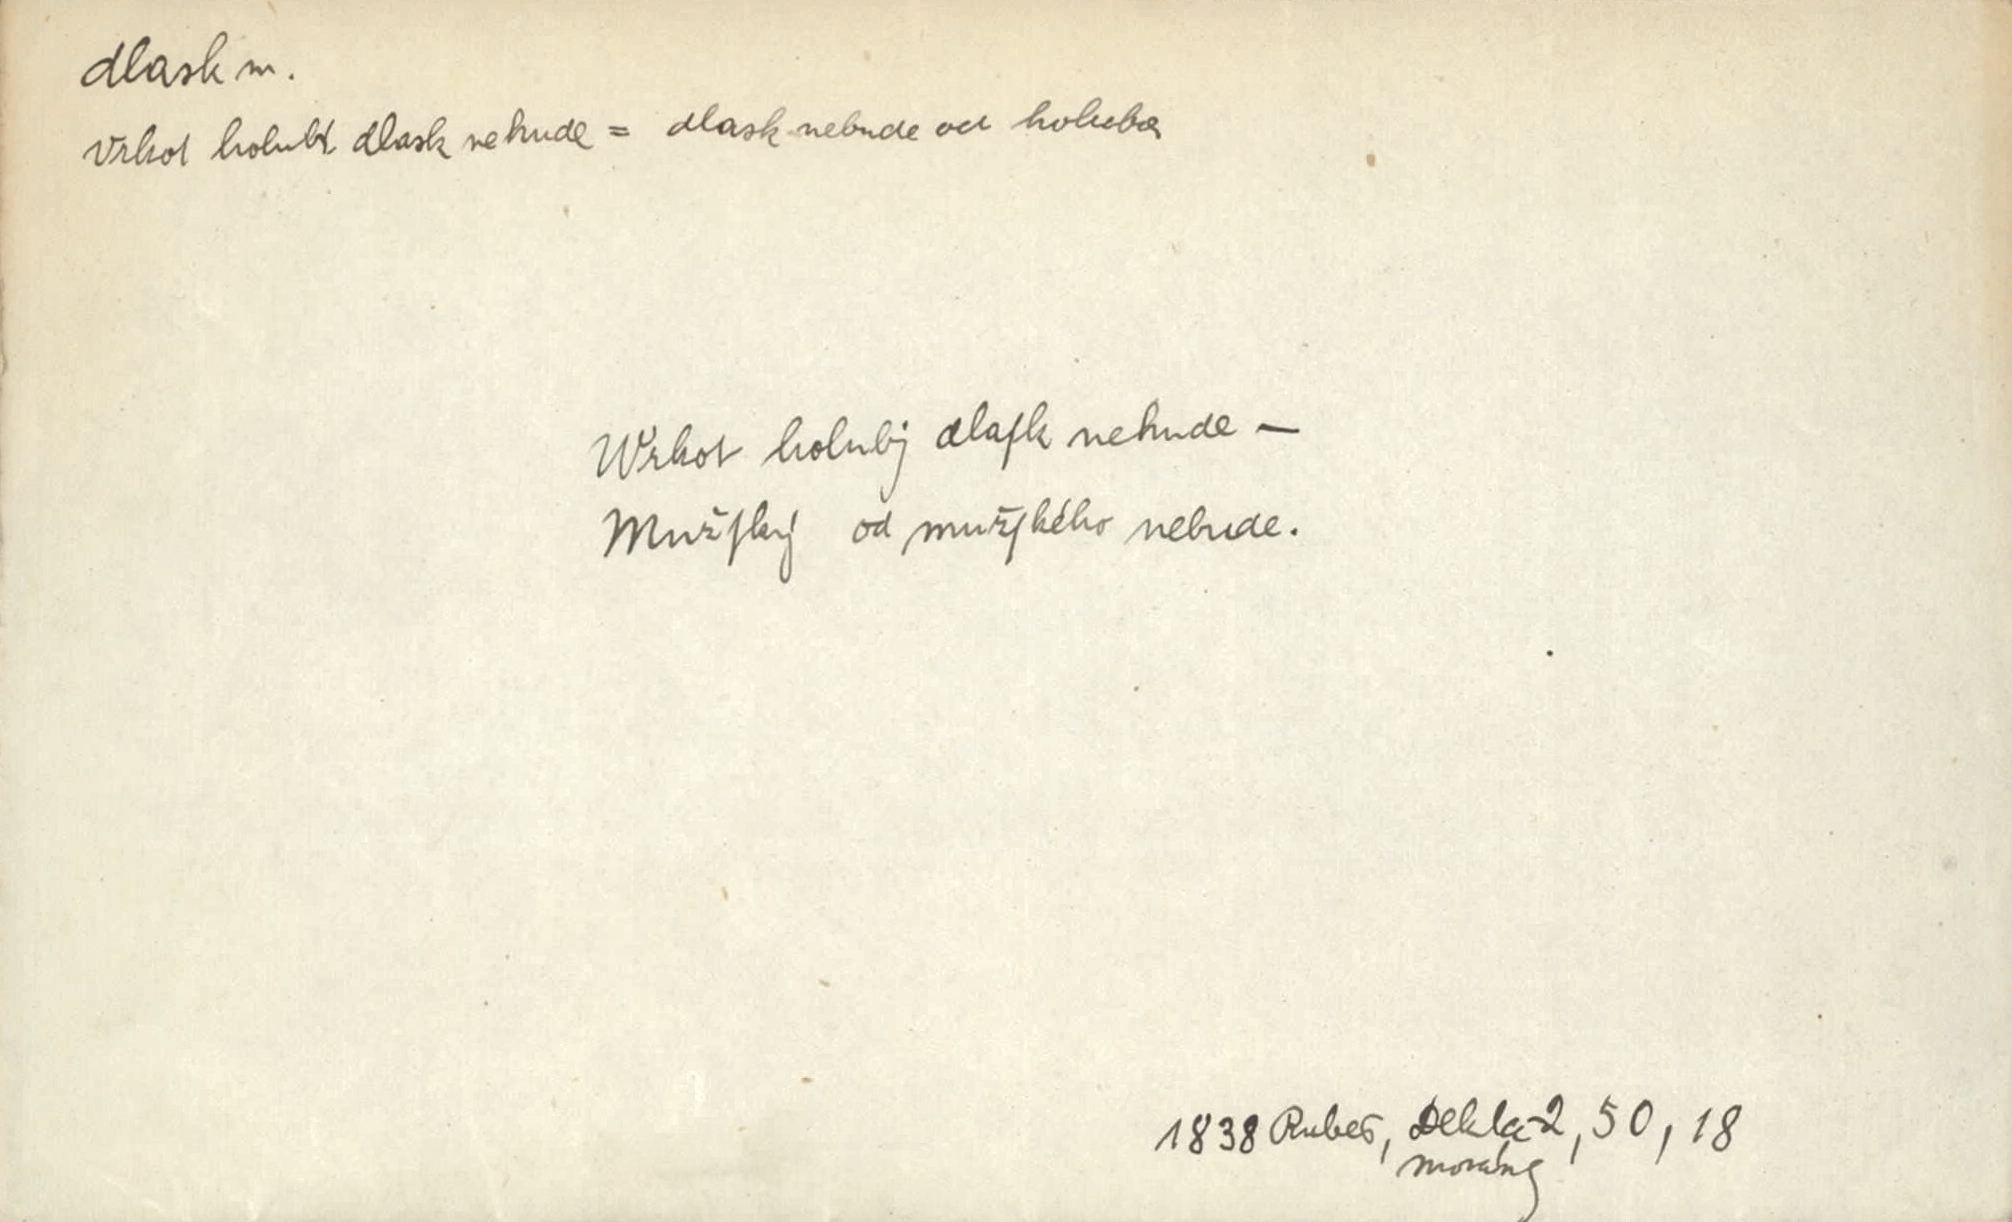 dlask m.
Vrkot holubí dlask nehude = dlask nebude od holuba
Wrkot holubj dlaſk nehude —
Mužſký od mužſkého nebude.
1838 Rubeš, Dekla- 2, 50, 18